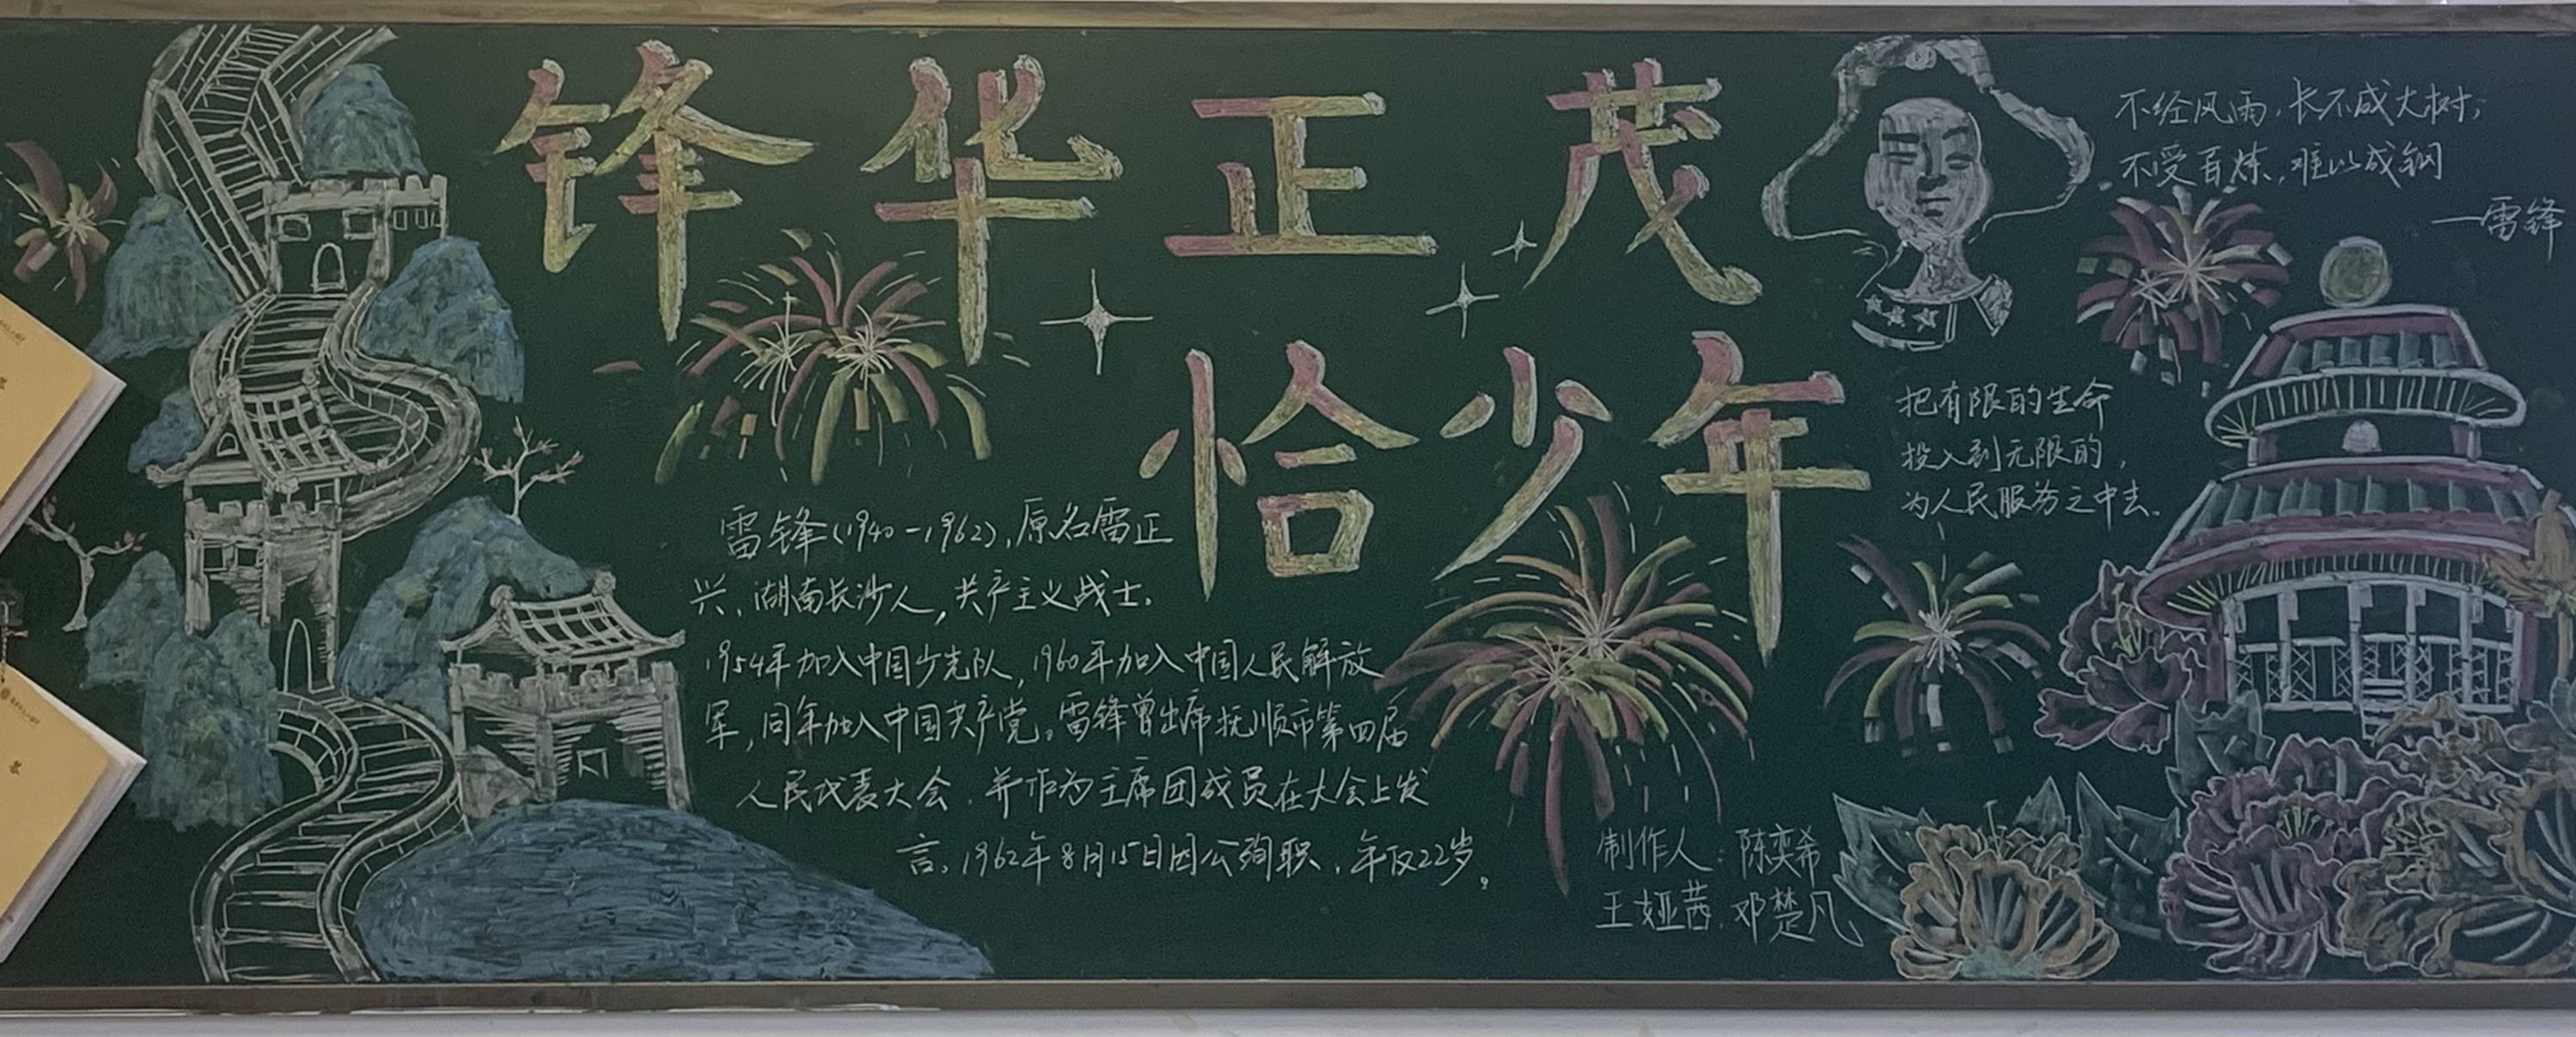 锋华正茂
恰少年
不经风雨，长不成大树；
不受百炼，难以成钢
—雷锋
把有限的生命
投入到无限的，
为人民服务之中去。
雷锋(1940-1962)，原名雷正
兴、湖南长沙人，共产主义战士。
1954年加入中国少先队，1960年加入中国人民解放
军，同年加入中国共产党。雷锋曾出席抚顺市第四届
人民代表大会．并作为主席团成员在大会上发
言。1962年8月15日因公殉职．年仅22岁。
制作人：陈奕希
王娅茜．邓楚凡